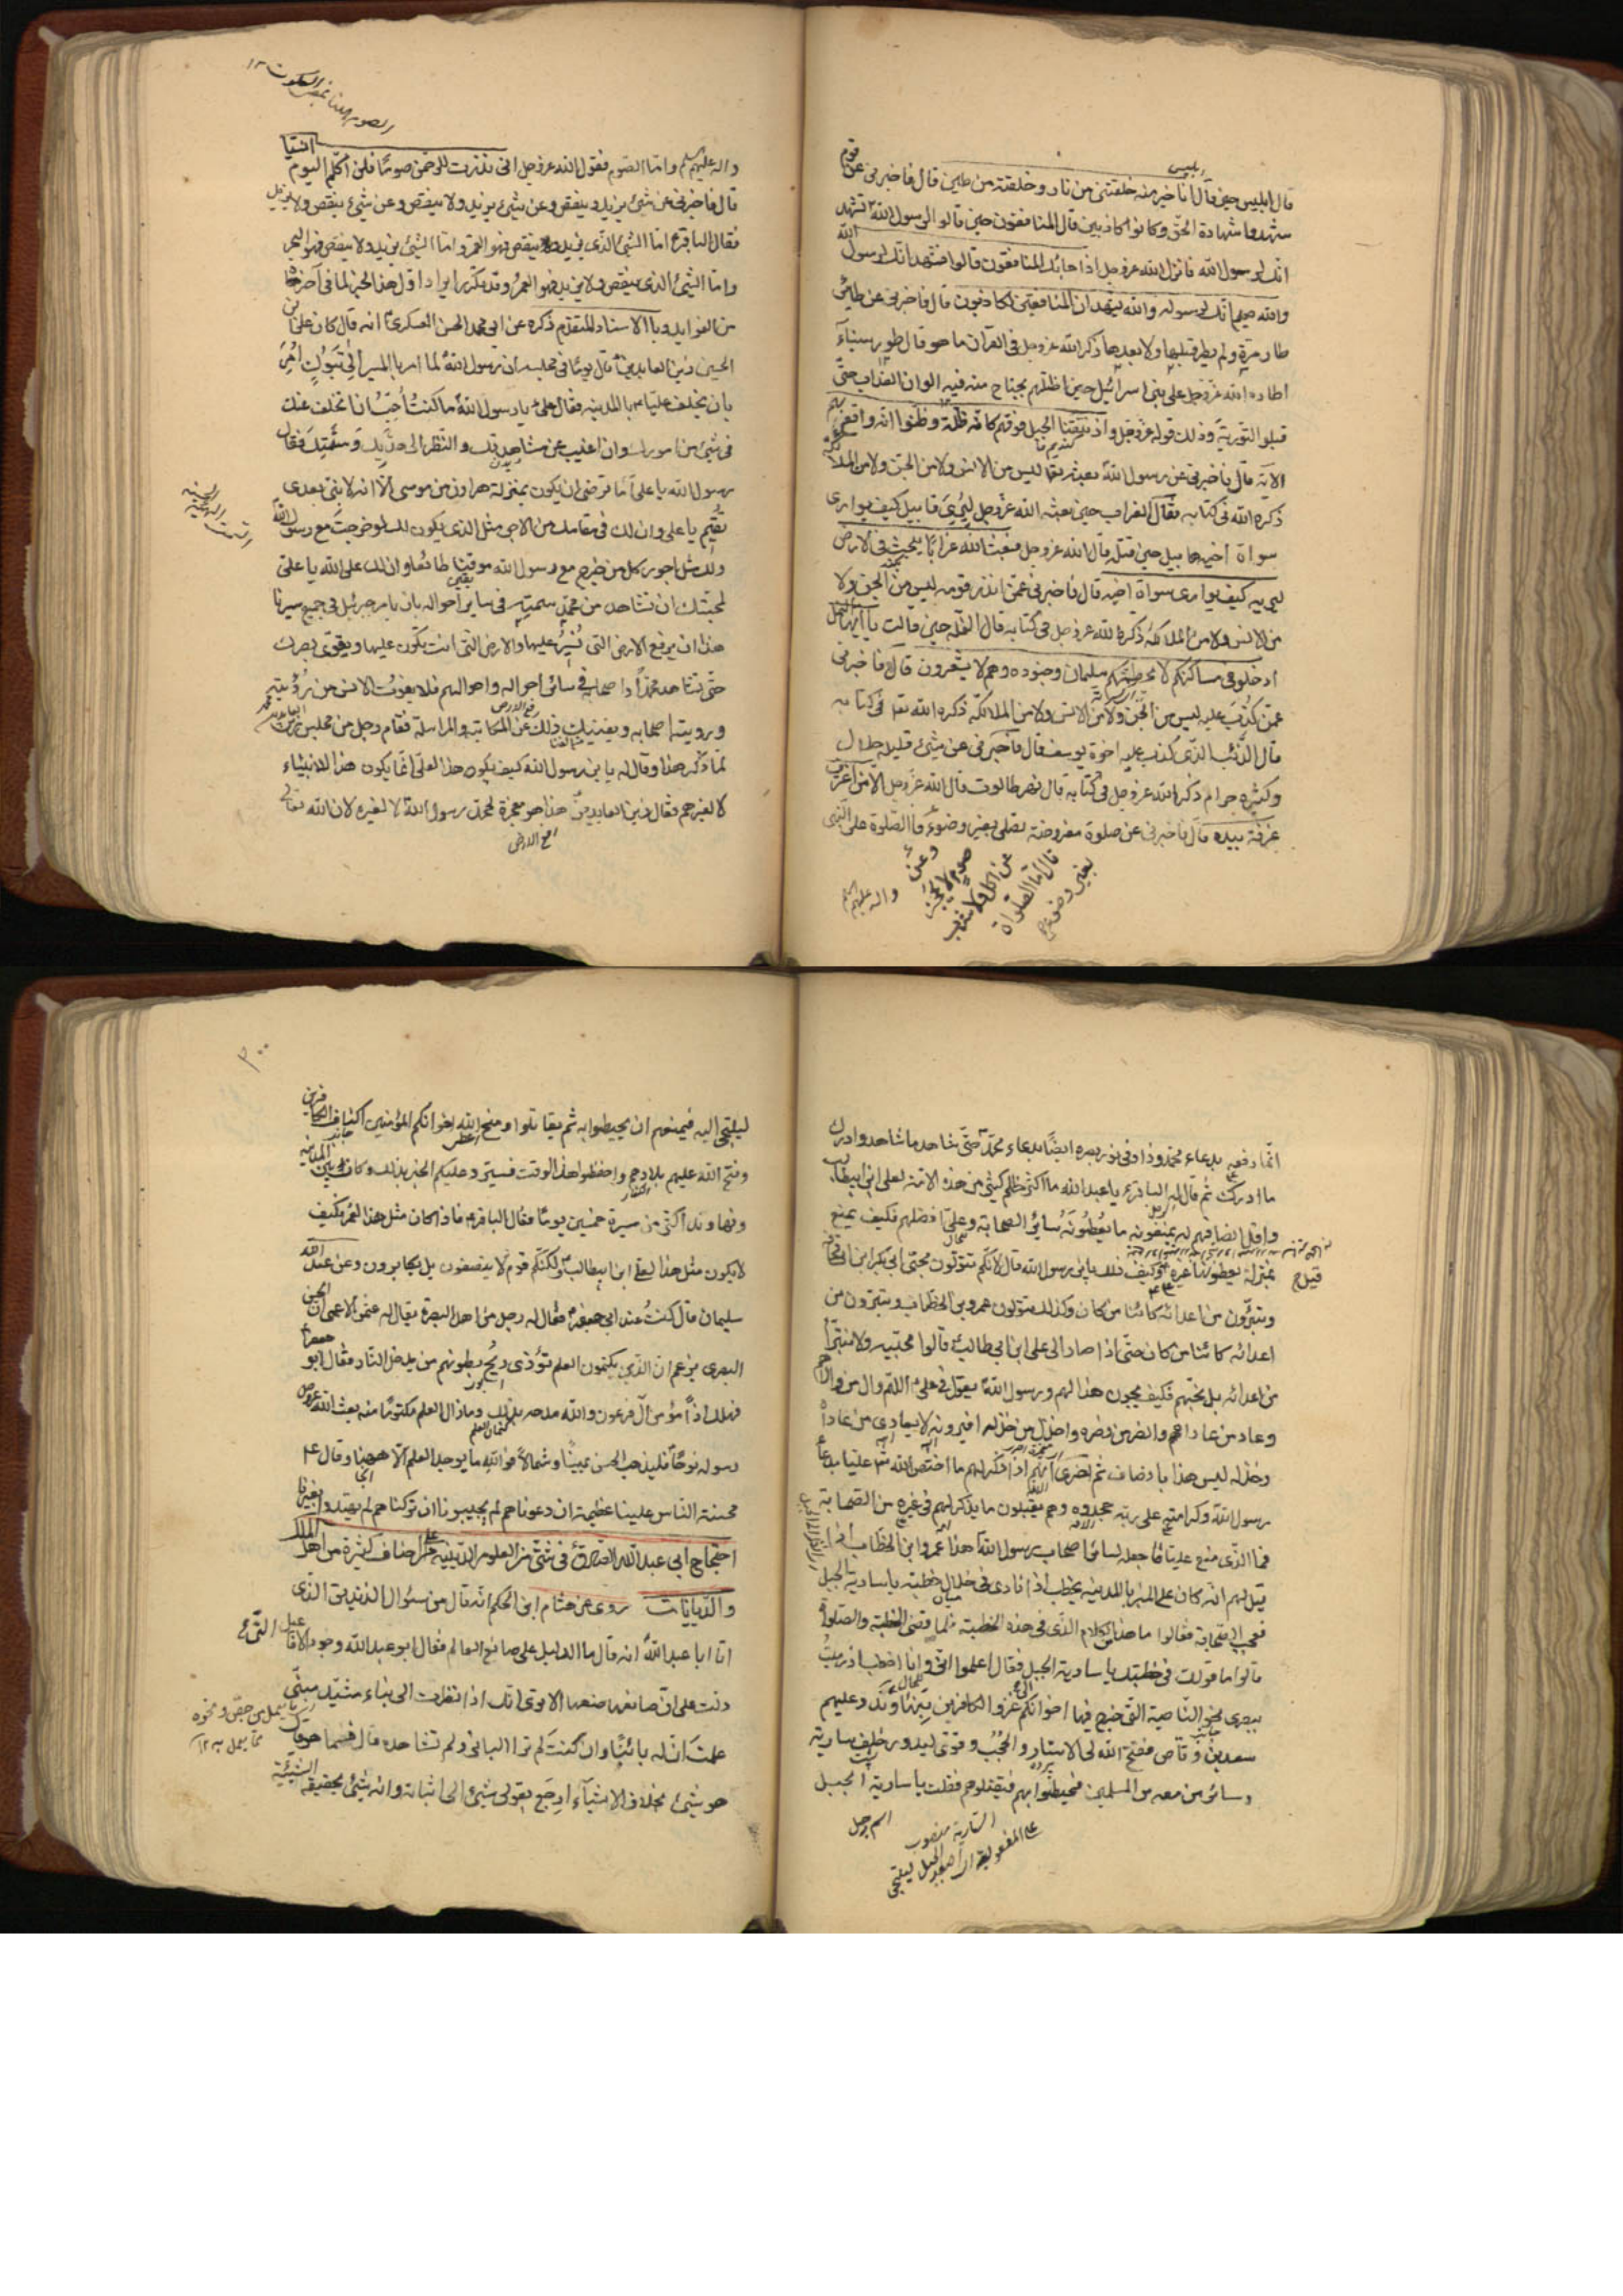 قال ابليس حين قال انا خير منه خلقتنى من نار وخلقته من طين قال فاخبرنى عن قوم
شهدوا شهادة الحق وكانوا كاذبين قال المنافقون حين قالوا لرسول الله نشهد
انك لرسول الله فانزل الله عز وجل اذا جاءك المنافقون قالوا نشهد انك لرسول الله
والله يعلم انك لرسوله والله يشهد ان المنافقين لكاذبون قال فاخبرنى عن طائر
طار مرة ولم يطر قبلها ولا بعدها ذكره الله عز وجل فى القرآن ما هو قال طور سيناء
اطاره الله عز وجل على بنى اسرائيل حين اظلهم بجناح منه فيه الوان العذاب حتى
قبلوا التورية وذلك قوله عز وجل واذ نتقنا الجبل فوقهم كانه ظلة وظنوا انه واقع بهم
الآية قال فاخبرنى عن رسول الله بعثه تعا ليس من الانس ولا من الجن ولا من الملائكة
ذكره الله فى كتابه فقال الغراب حين بعثه الله عز وجل ليرى قابيل كيف يوارى
سواة اخيه هابيل حين قتله قال الله عز وجل فبعث الله غرابا يبحث فى الارض
ليريه كيف يوارى سواة اخيه قال فاخبرنى عمن انذر قومه ليس من الجن ولا
من الانس ولا من الملائكة ذكره الله عز وجل فى كتابه قال النملة حين قالت يا ايها النمل
ادخلوا مساكنكم لا يحطمنكم سليمان وجنوده وهم لا يشعرون قال فاخبرنى
عمن كذب عليه ليس من الجن ولا من الانس ولا من الملائكة ذكره الله تعا فى كتابه
قال الذئب الذى كذب عليه اخوة يوسف قال فاخبرنى عن شئ قليله حلال
وكثيره حرام ذكره الله عز وجل فى كتابه قال نهر طالوت قال الله عز وجل الا من اغترف
غرفة بيده قال فاخبرنى عن صلوة مفروضة تصلى بغير وضوء قال الصلوة على النبى
وعن
صوم لا يحجز
عن اكل ولا شرب
قال اما الصلواة
بغير وضوء
واله عليهم
واله عليهم واما الصوم فقول الله عز وجل انى نذرت للرحمن صوما فلن اكلم اليوم انسيا
قال فاخبرنى عن شئ يزيد وينقص وعن شئ يزيد ولا ينقص وعن شئ ينقص ولا يزيد
فقال الباقر اما الشئ الذى يزيد وينقص فهو القمر واما الشئ يزيد ولا ينقص فهو البحر
واما الشئ الذى ينقص ولا يزيد فهو العمر وقد تكرر ايراد اول هذا الخبر لما فى آخرها
من الفوايد وبالاسناد المتقدم ذكره عن ابى محمد الحسن العسكرى انه قال كان على بن
الحسين زين العابدين قال يوما فى مجلسه ان رسول الله لما امر بالمسير الى تبوك امر
بان يخلف عليا بالمدينه فقال على يا رسول الله ما كنت احب ان اتخلف عنك
فى شئ من امورك وان اغيب عن مشاهدتك والنظر الى هديك وسمتك فقال
رسول الله يا على اما ترضى ان يكون بمنزلة هارون من موسى الا انه لا نبى بعدى
تقيم يا على وان لك فى مقامك من الاجر مثل الذى يكون لك لو خرجت مع رسول الله
ولك مثل اجور كل من خرج مع رسول الله موقنا طائعا وان لك على الله يا على
لمحبتك ان تشاهد من محمد سمته فى ساير احواله بان يامر جبرئيل فى جميع سيرنا
هذا ان يرفع الارض التى نسير عليها والارض التى انت يكون عليها ويقوى بصرك
حتى تشاهد محمدا واصحابه فى سائر احواله واحوالهم فلا يفوتك الانس من رؤيته
ورويته اصحابه ويغنيك ذلك عن المكاتبه والمراسلة فقام رجل من مجلس زين العابدين
لما ذكر هذا وقال له يا بن رسول الله كيف يكون هذا لعلى انما يكون هذا للانبياء
لا لغيرهم فقال زين العابدين هذا هو معجزة لمحمد رسول الله لا لغيره لان الله تعالى
انما رفعه بدعاء محمد وزاد فى نور بصره ايضا بدعاء محمد حتى شاهد ما شاهد وادرك
ما ادرك ثم قال له الباقر يا عبد الله ما اكثر ظلم كثير من هذه الامة لعلى ابن ابيطالب
واقل انصافهم له يمنعونه ما يعطونه سائر الصحابة وعلى افضلهم فكيف يمنع
بمنزلة يعطونها غيره قيل وكيف ذلك يا بن رسول الله قال لانكم تتولون محبى ابى بكر ابن ابى قحافة
وتتبرؤن من اعدائه كائنا من كان وكذلك تتولون عمر بن الخطاب وتتبرون من
اعدائه كائنا من كان حتى اذا صار الى على ابن ابى طالب قالوا محبيه ولا نتبرأ
من اعدائه بل نحبهم فكيف يجوز هذا لهم ورسول الله يقول فى على اللهم وال من والاه
وعاد من عاداه وانصر من نصره واخذل من خذله افترونه لا يعادى من عاداه
وخذله ليس هذا بانصاف ثم اخرى انهم اذا ذكر لهم ما اختص الله به عليا بدعاء
رسول الله وكرامته على ربه جحدوه وهم يقبلون ما يذكر لهم فى غيره من الصحابة
فما الذى منع عليا ما جعله لسائر اصحاب رسول الله هذا عمر ابن الخطاب اذا
قيل لهم انه كان على المنبر بالمدينه يخطب اذ نادى فى خلال خطبته يا سارية الجبل
فعجب الصحابة فقالوا ما هذا الكلام الذى فى هذه الخطبة فلما قضى الخطبة والصلوة
قالوا ما قولك فى خطبتك يا سارية الجبل فقال اعلموا انى وانا اخطب اذ رميت
ببصرى نحو الناحية التى خرج فيها اخوانكم الى غزو الكافرين بنهاوند وعليهم
سعد بن وقاص ففتح الله لى الاستار والحجب وقوى بصرى
وسائر من معه من المسلمين فيحيطوا بهم فيقتلوهم فقلت يا سارية الجبل
اسم رجل
السارية منصوب
على المفعولية
٣٠٠
ليلتجى اليه فيمنعهم ان يحيطوا به ثم يقاتلوا ومنح الله اخوانكم المؤمنين اكتاف الكافرين
وفتح الله عليهم بلادهم واحفظوا هذا الوقت فسيرد عليكم الخبر بذلك وكان بين المدينة
ونهاوند اكثر من مسيرة خمسين يوما فقال الباقر فاذا كان مثل هذا لعمر فكيف
لا يكون مثل هذا لعلى ابن ابيطالب ولكنكم قوم لا ينصفون بل يكابرون وعن عبد الله
سليمان قال كنت عند ابى جعفر فقال له رجل من اهل البصرة يقال له عثمن الاعمى ان الحسن
البصرى يزعم ان الذين يكتمون العلم تؤذى ريح بطونهم من يدخل النار فقال ابو جعفر
فهلك اذا مؤمن آل فرعون والله مدحه بذلك وما زال العلم مكتوما منذ بعث الله عز وجل
رسوله نوحا فليذهب الحسن يمينا وشمالا فوالله ما يوجد العلم الا ههنا وقال ع
محنة الناس علينا عظيمة ان دعوناهم لم يجيبونا وان تركناهم لم يهتدوا بغيرنا
احتجاج ابى عبد الله الصادق فى شتى من العلوم الدينيه على اصناف كثيرة من اهل الملل
والديانات روى عن هشام ابن الحكم انه قال من سئوال الزنديق الذى
اتا ابا عبد الله انه قال ما الدليل على صانع العالم فقال ابو عبد الله وجود الافاعيل التى
دلت على ان صانعها صنعها الا ترى انك اذا نظرت الى بناء مشيد مبنى
علمت ان له بانيا وان كنت لم تر البانى ولم تشاهده قال فما هو قال
هو شئ بخلاف الاشياء ارجع بقولى شئ الى اثباته وانه شئ بحقيقة الشيئية